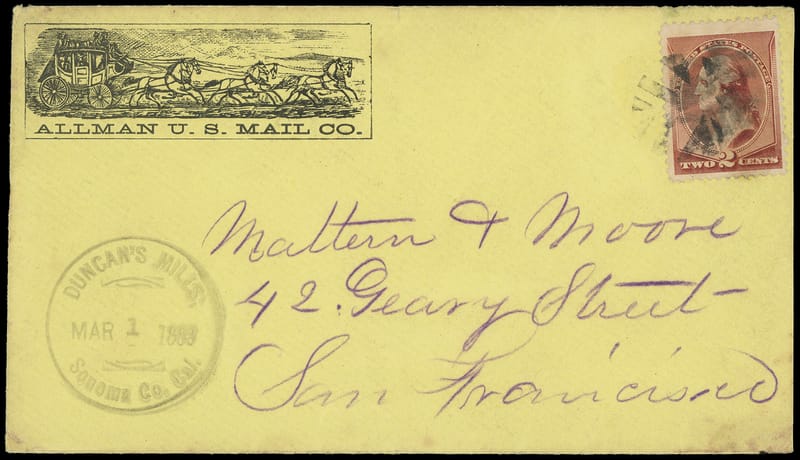 ALLMAN U. S. MAIL CO.
UNITED STATES POSTAGE
TWO 2 CENTS
Mattern & Moore
42. Geary Street
San Francisco
DUNCAN'S MILLS,
MAR 1 1883
Sonoma Co. Cal.